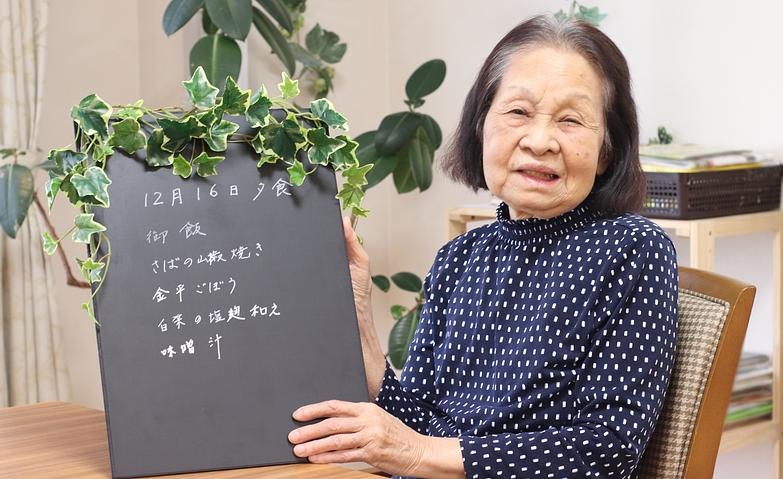 12月16日 夕食
御飯
さばの山椒焼き
金平ごぼう
白菜の塩麹和え
味噌汁